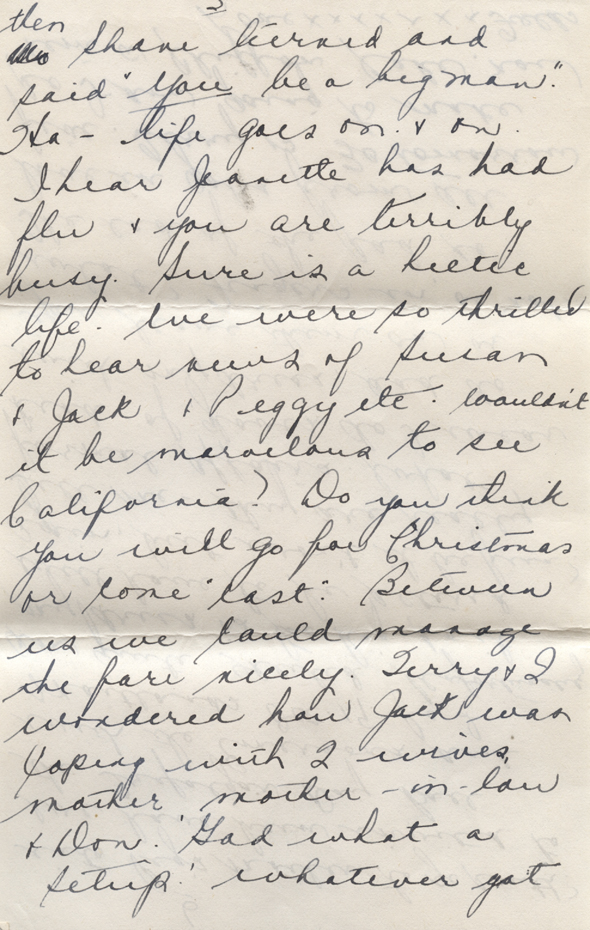 2
then
Shane turned and
said "You be a big man".
Ha - life goes on. & on.
I hear Jeanette has had
flu & you are terribly
busy. Sure is a hectic
life. We were so thrilled
to hear news of Susan
& Jack & Peggy etc. Wouldn't
it be marvelous to see
California? Do you think
you will go for Christmas
or come "east". Between
us we could manage
the fare nicely. Terry & I
wondered how Jack was
coping with 2 wives,
mother mother-in-law
& Don. 'Gad what a
setup' whatever got